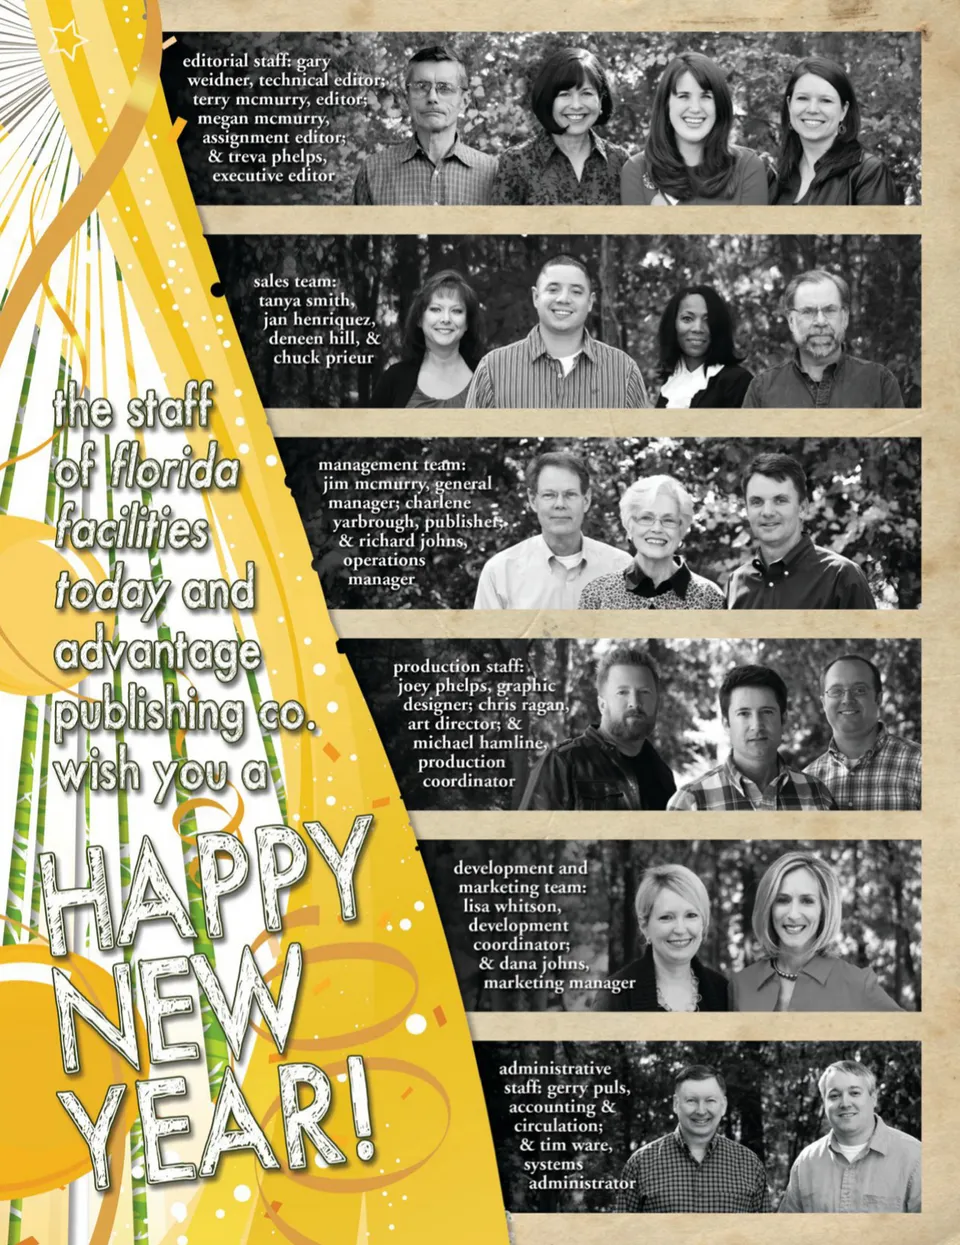 editorial staff: gary
weidner, technical editor;
terry mcmurry, editor;
megan mcmurry,
assignment editor;
& treva phelps,
executive editor
sales team:
tanya smith,
jan henriquez,
deneen hill, &
chuck prieur
management team:
jim mcmurry, general
manager; charlene
yarbrough, publisher;
& richard johns,
operations
manager
production staff:
joey phelps, graphic
designer; chris ragan,
art director; &
michael hamline,
production
coordinator
development and
marketing team:
lisa whitson,
development
coordinator;
& dana johns,
marketing manager
administrative
staff: gerry puls,
accounting &
circulation;
& tim ware,
systems
administrator
the staff
of florida
facilities
today and
advantage
publishing co.
wish you a
HAPPY
NEW
YEAR!